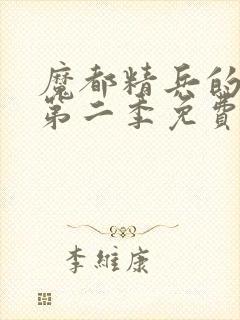 魔都精兵的
第二季免費
李維康